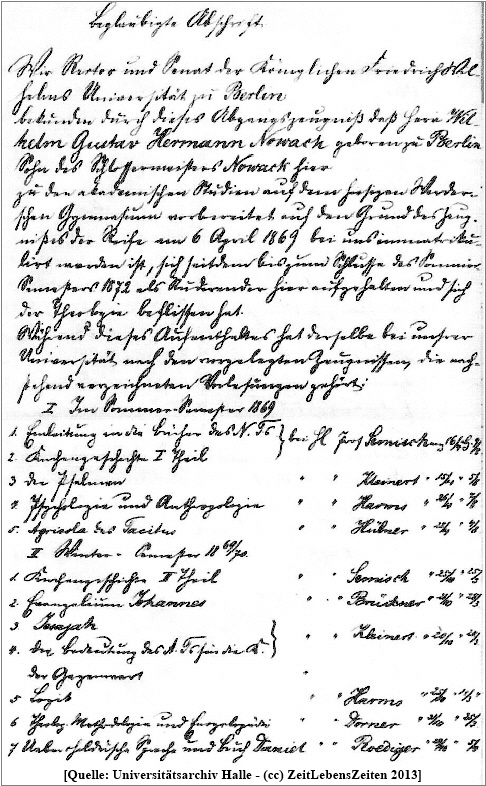 Beglaubigte Abschrift.
Wir Rector und Senat der Königlichen Friedrich Wil-
helms Universität zu Berlin
bekunden durch dieses Abgangszeugniß daß Herr Wil-
helm Gustav Hermann Nowack geboren zu Berlin
Sohn des Schlossermeisters Nowack hier
zu den akademischen Studien auf dem hiesigen Werder-
schen Gymnasium vorbereitet auf den Grund des Zeug-
nißes der Reife am 6 April 1869 bei uns immatriku-
lirt worden ist, sich seitdem bis zum Schlusse des Sommer-
Semesters 1872 als Studirender hier aufgehalten und sich
der Theologie beflissen hat.
Während dieses Aufenthaltes hat derselbe bei unsrer
Universität nach den vorgelegten Zeugnissen, die nach-
stehend verzeichneten Vorlesungen gehört:
I Im Sommer-Semester 1869
1. Einleitung in die Bücher des N. Ts } bei H. Prof Semisch
2. Kirchengeschichte I Theil
3 die Psalmen " " Kleinert
4 Psychologie und Anthropologie " " Harms
5. Agricola des Tacitus " " Hübner
II Winter-Semester 1869/70.
1. Kirchengeschichte II Theil " " Semisch
2. Evangelium Johannes " " Brückner
3 Jesajah
4. Die Bedeutung des A. Ts für die K. } " " Kleinert
der Gegenwart "
5 Logik " " Harms
6 Theolog. Methodologie und Encyclopädie " " Dorner
7 Ueber chaldäische Sprache und Buch Daniel " " Roediger
[Quelle: Universitätsarchiv Halle - (cc) ZeitLebensZeiten 2013]